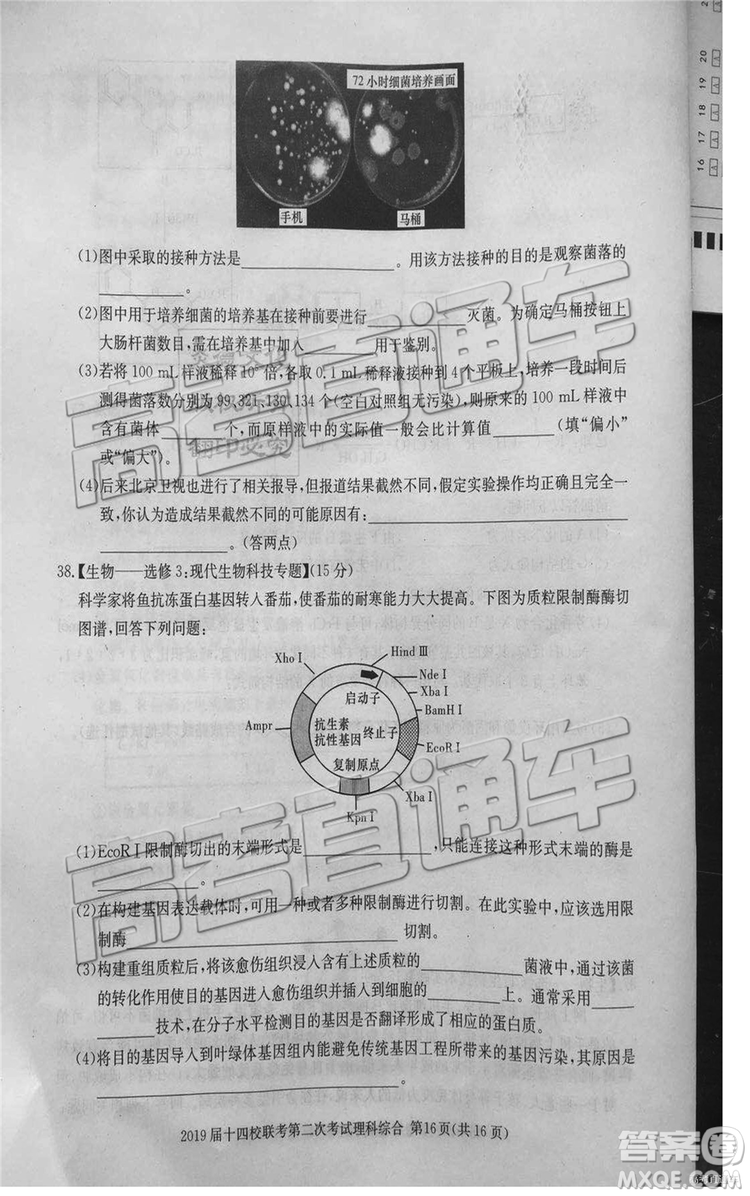 72小时细菌培养画面
手机
马桶
(1)图中采取的接种方法是____________。用该方法接种的目的是观察菌落的
________。
(2)图中用于培养细菌的培养基在接种前要进行________灭菌。为确定马桶按钮上
大肠杆菌数目,需在培养基中加入________用于鉴别。
(3)若将100 mL样液稀释10 倍,各取0.1 mL稀释液接种到4个平板上,培养一段时间后
测得菌落数分别为99,321,130,134个(空白对照组无污染),则原来的100 mL样液中
含有菌体________个,而原样液中的实际值一般会比计算值________(填“偏小”
或“偏大”)。
(4)后来北京卫视也进行了相关报导,但报道结果截然不同,假定实验操作均正确且无污
染,你认为造成结果截然不同的可能原因有:____________________
____________。(答两点)
38.【生物——选修3:现代生物科技专题】(15分)
科学家将鱼抗冻蛋白基因转入番茄,使番茄的耐寒能力大大提高。下图为质粒限制酶酶切
图谱,回答下列问题:
Hind Ⅲ
Xho Ⅰ
Nde Ⅰ
Xba Ⅰ
BamH Ⅰ
启动子
Ampr
抗生素
抗性基因
终止子
EcoR Ⅰ
复制原点
Xba Ⅰ
Kpn Ⅰ
(1)EcoR Ⅰ限制酶切出的末端形式是____________,只能连接这种形式末端的酶是
________。
(2)在构建基因表达载体时,可用一种或者多种限制酶进行切割。在此实验中,应该选用限
制酶____________________切割。
(3)构建重组质粒后,将该愈伤组织浸入含有上述质粒的________菌液中,通过该菌
的转化作用使目的基因进入愈伤组织并插入到细胞的________上。通常采用____
________技术,在分子水平检测目的基因是否翻译形成了相应的蛋白质。
(4)将目的基因导入到叶绿体基因组内能避免传统基因工程所带来的基因污染,其原因是
____________________。
2019届十四校联考第二次考试理科综合 第16页(共16页)
高考直通车
高考直通车
翻印必究
20
19
18
17
16
答案圈
MXQE.COM